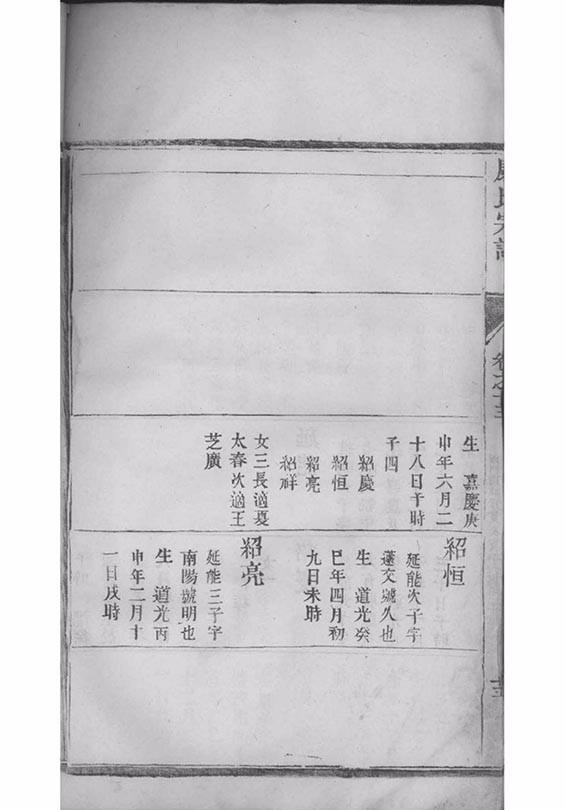 氏宗譜
卷之十三
生 嘉慶庚
申年六月二
十八日子時
子四
紹慶
紹恒
紹亮
紹祥
女三長適夏
太春次適王
芝廣
紹恒
延能次子字
蓬交號久也
生 道光癸
巳年四月初
九日未時
紹亮
延能三子字
南陽號明也
生 道光丙
申年二月十
一日戌時